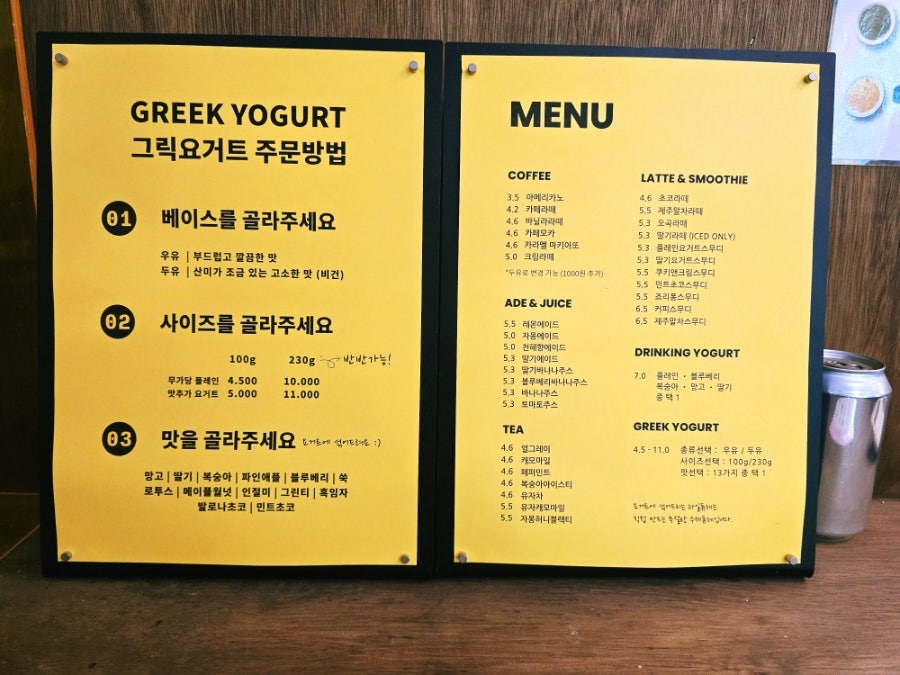 GREEK YOGURT
그릭요거트 주문방법
01 베이스를 골라주세요
우유 | 부드럽고 깔끔한 맛
두유 | 산미가 조금 있는 고소한 맛 (비건)
02 사이즈를 골라주세요
100g 230g 반반가능!
무가당 플레인 4.500 10.000
맛추가 요거트 5.000 11.000
03 맛을 골라주세요 요거트에 섞어드려요 :)
망고 | 딸기 | 복숭아 | 파인애플 | 블루베리 | 쑥
로투스 | 메이플월넛 | 인절미 | 그린티 | 흑임자
발로나초코 | 민트초코
MENU
COFFEE
3.5 아메리카노
4.2 카페라떼
4.6 바닐라라떼
4.6 카페모카
4.6 카라멜 마키아또
5.0 크림라떼
*두유로 변경 가능 (1000원 추가)
ADE & JUICE
5.5 레몬에이드
5.0 자몽에이드
5.0 천혜향에이드
5.3 딸기에이드
5.3 딸기바나나주스
5.3 블루베리바나나주스
5.3 바나나주스
5.3 토마토주스
TEA
4.6 얼그레이
4.6 캐모마일
4.6 페퍼민트
4.6 복숭아아이스티
4.6 유자차
5.5 유자캐모마일
5.5 자몽허니블랙티
LATTE & SMOOTHIE
4.6 초코라떼
5.5 제주말차라떼
5.3 오곡라떼
5.3 딸기라떼 (ICED ONLY)
5.3 플레인요거트스무디
5.3 딸기요거트스무디
5.5 쿠키앤크림스무디
5.5 민트초코스무디
5.5 죠리퐁스무디
6.5 커피스무디
6.5 제주말차스무디
DRINKING YOGURT
7.0 플레인 · 블루베리
복숭아 · 망고 · 딸기
중 택 1
GREEK YOGURT
4.5 - 11.0 종류선택 : 우유 / 두유
사이즈선택 : 100g/230g
맛선택 : 13가지 중 택 1
요거트에 섞어드리는 과일퓨레는
직접 만드는 수제퓨레입니다.